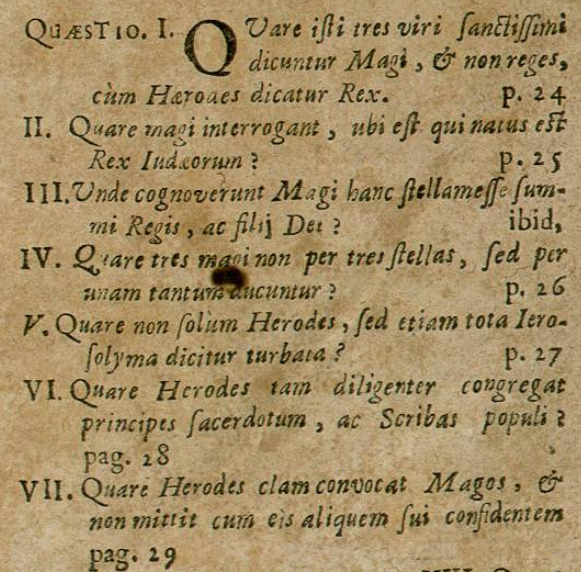 QUÆSTIO. I. QVare iſti tres viri ſanctiſſimi
dicuntur Magi, & non reges,
cùm Hærodes dicatur Rex. p. 24
II. Quare magi interrogant, ubi eſt qui natus eſt
Rex Iudæorum? p. 25
III. Unde cognoverunt Magi hanc ſtellam eſſe ſum-
mi Regis, ac filij Dei? ibid,
IV. Quare tres magi non per tres ſtellas, ſed per
unam tantum ducuntur? p. 26
V. Quare non ſolùm Herodes, ſed etiam tota Iero-
ſolyma dicitur turbata? p. 27
VI. Quare Herodes tam diligenter congregat
principes ſacerdotum, ac Scribas populi?
pag. 28
VII. Quare Herodes clam convocat Magos, &
non mittit cum eis aliquem ſui confidentem
pag. 29